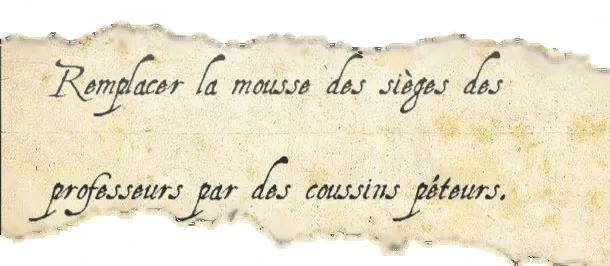 Remplacer la mousse des sièges des
professeurs par des coussins péteurs.